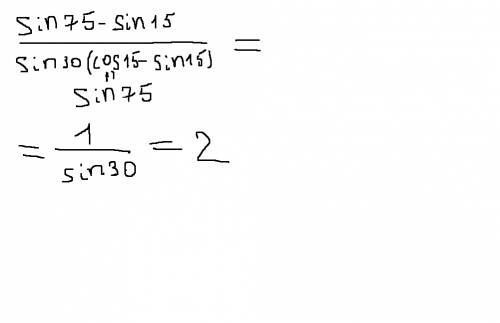 sin75-sin15
sin30(cos15-sin15) =
sin75
= 1/sin30 = 2